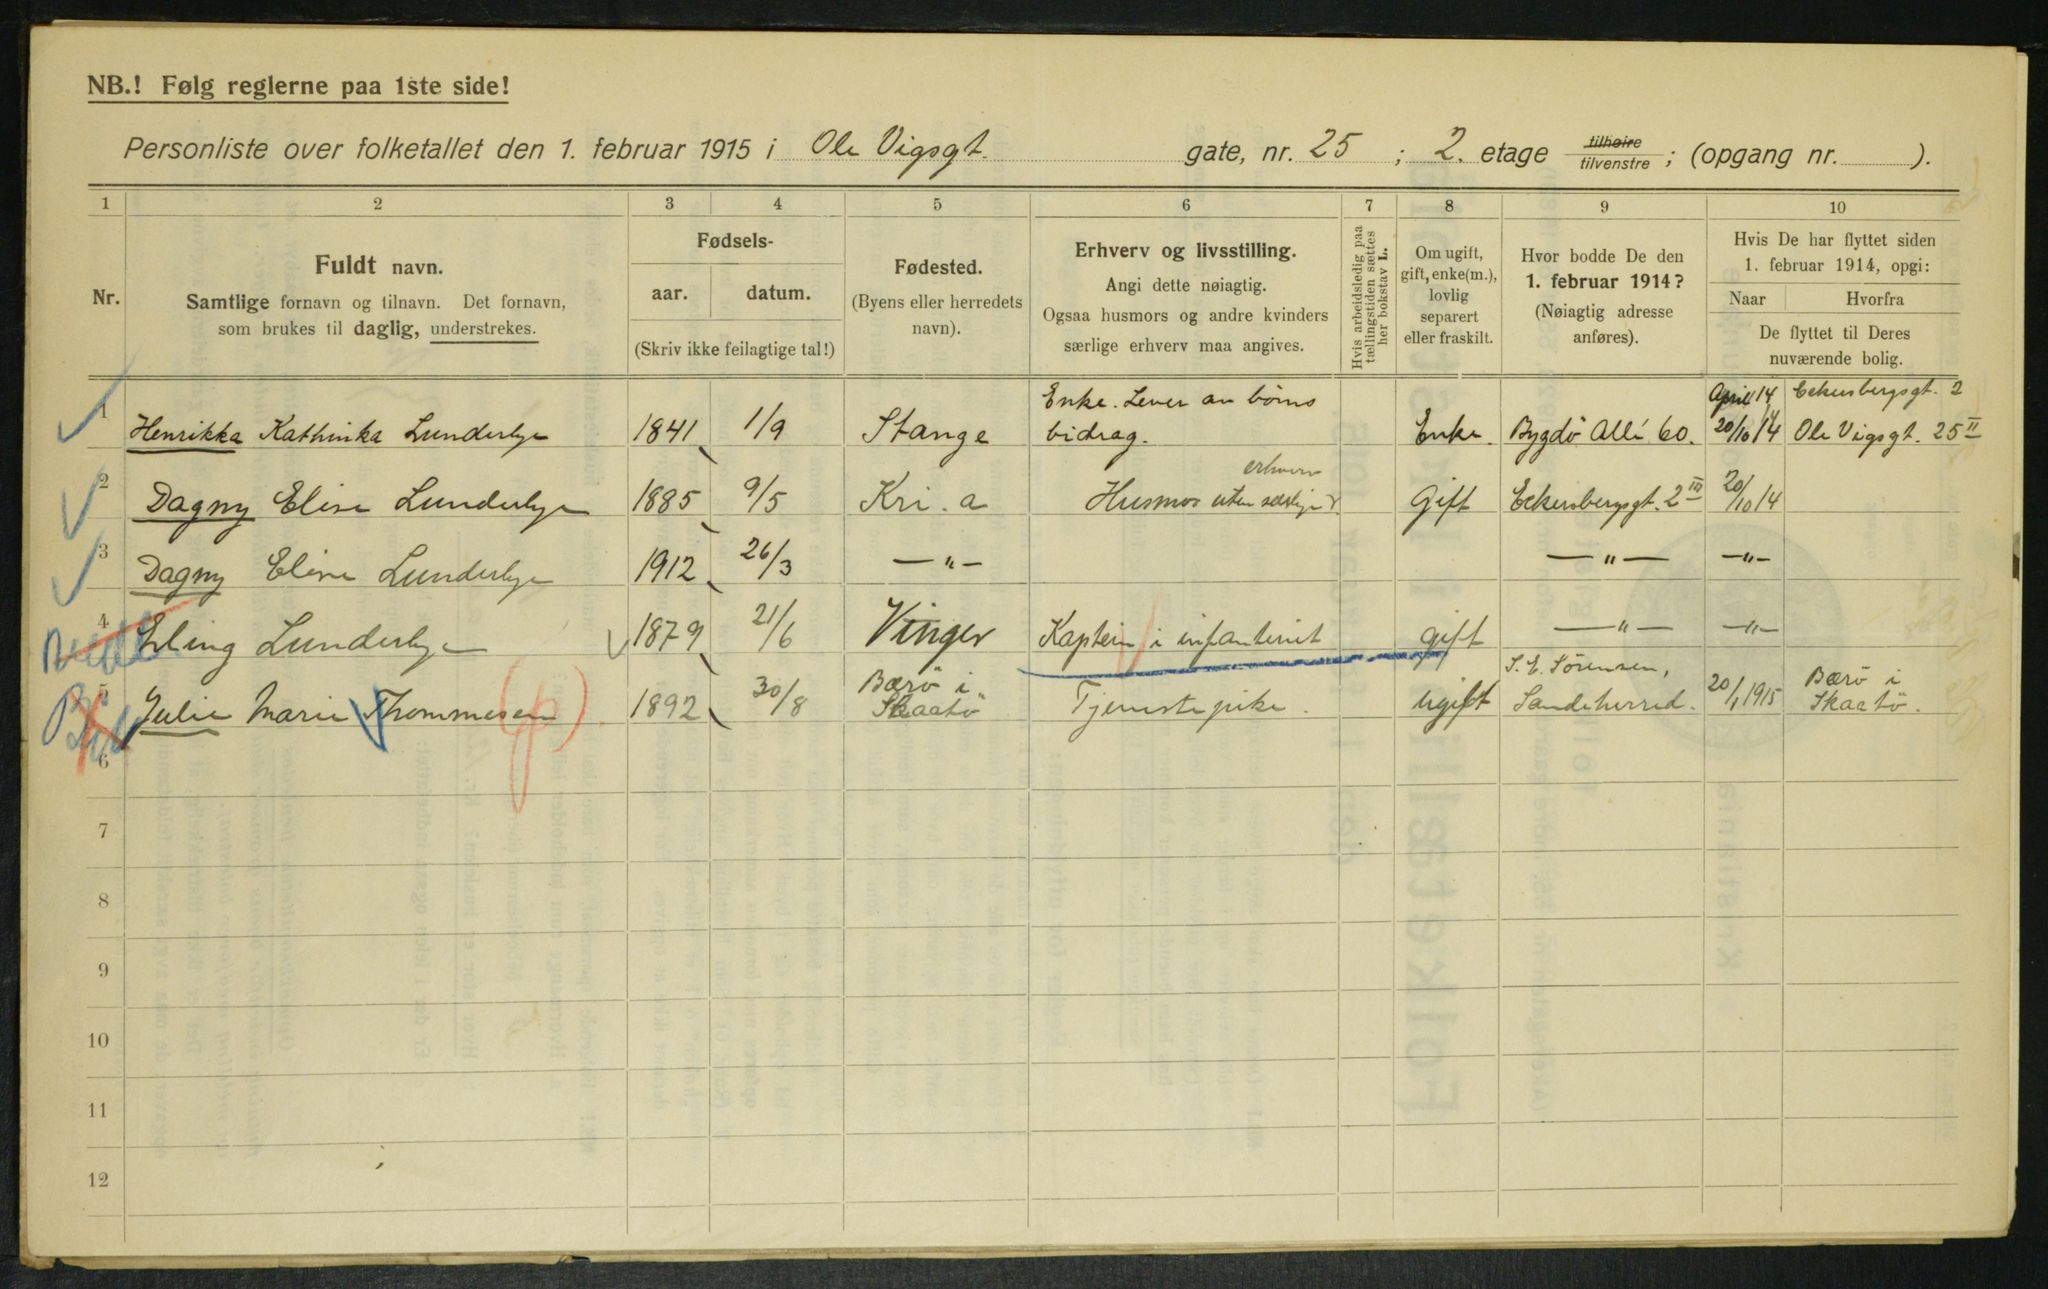 NB.! Følg reglerne paa 1ste side!
Personliste over folketallet den 1. februar 1915 i Ole Vigsgt. gate, nr. 25 ; 2. etage tilhøire tilvenstre ; (opgang nr. ).
1 2 3 4 5 6 7 8 9 10
Nr.
Fuldt navn.
Samtlige fornavn og tilnavn. Det fornavn,
som brukes til daglig, understrekes.
Fødsels-
aar. datum.
(Skriv ikke feilagtige tal!)
Fødested.
(Byens eller herredets
navn).
Erhverv og livsstilling.
Angi dette nøiagtig.
Ogsaa husmors og andre kvinders
særlige erhverv maa angives.
Hvis arbeidsledig paa
tællingstiden sættes
her bokstav L.
Om ugift,
gift, enke(m.),
lovlig
separert
eller fraskilt.
Hvor bodde De den
1. februar 1914?
(Nøiagtig adresse
anføres).
Hvis De har flyttet siden
1. februar 1914, opgi:
Naar Hvorfra
De flyttet til Deres
nuværende bolig.
1 Henrikka Kathinka Lunderbye 1841 1/9 Stange Enke. Lever av børns bidrag. Enke. Bygdö Allé 60. April 14 Eckersbergsgt. 2
20/10 14 Ole Vigsgt. 25 II
2 Dagny Elise Lunderbye 1885 9/5 Kri.a Husmor uten særlige erhverv Gift Eckersbergsgt. 2 III 20/10 14
3 Dagny Elise Lunderbye 1912 26/3 —"— —"— —"—
4 Erling Lunderbye 1879 21/6 Vinger Kaptein i infanteriet gift —"— —"—
5 Julie Marie Thommesen (p) 1892 30/8 Bærö i Skaatö Tjenestepike. ugift S. E. Sörensen, Sandeherred. 20/1 1915 Bærö i Skaatö.
6
7
8
9
10
11
12